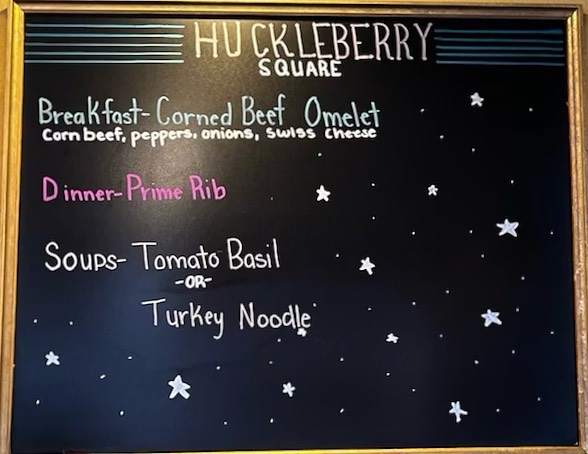 HUCKLEBERRY
SQUARE
Breakfast- Corned Beef Omelet
Corn beef, peppers, onions, Swiss Cheese
Dinner-Prime Rib
Soups- Tomato Basil
-OR-
Turkey Noodle